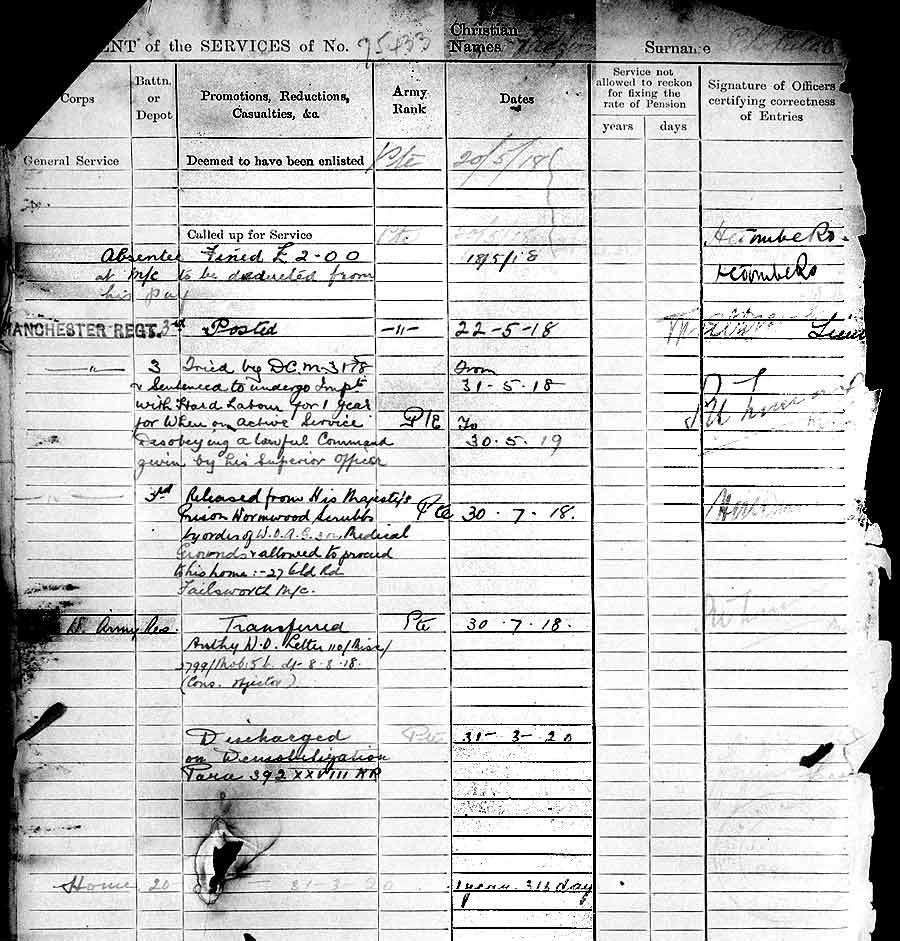 ENT of the SERVICES of No. 75433 Christian Names Surname
Corps
Battn. or Depot
Promotions, Reductions, Casualties, &c.
Army Rank
Dates
Service not allowed to reckon for fixing the rate of Pension
years days
Signature of Officers certifying correctness of Entries
General Service Deemed to have been enlisted Pte 20/5/18
Called up for Service Pte
Absentee Fined £ 2-00 18/5/18
at M/c to be deducted from
his pay
MANCHESTER REGT. 3rd Posted -"- 22-5-18 Lieut
-"- 3 Tried by D.C.M. From
& Sentenced to undergo Impt 31-5-18
with Hard Labour for 1 Year
for When on Active Service Pte To
Disobeying a lawful Command 30.5.19
given by his Superior Officer
-"- 3rd Released from His Majesty's
Prison Wormwood Scrubbs Pte 30.7.18.
by order of W.O. Medical
Grounds & allowed to proceed
to his home:- 27 Old Rd
Failsworth M/c.
W. Army Res. Transferred Pte 30.7.18.
Authy W.O. Letter 110/Misc/
dt- 8-8-18.
(Cons. objector)
Discharged Pte 31-3-20
on Demobilization
Para 392 XXVIII KR
Home 20 31-3-20 1 year